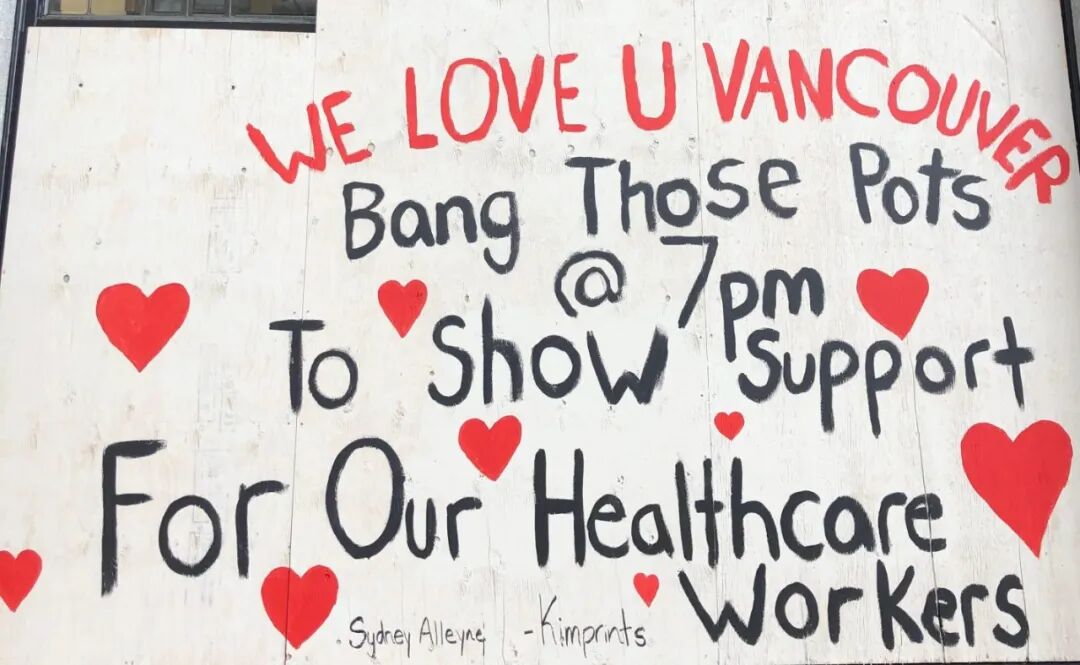 WE LOVE U VANCOUVER
Bang Those Pots
@ 7pm
To Show Support
For Our Healthcare
Workers
Sydney Alleyne - Kimprints